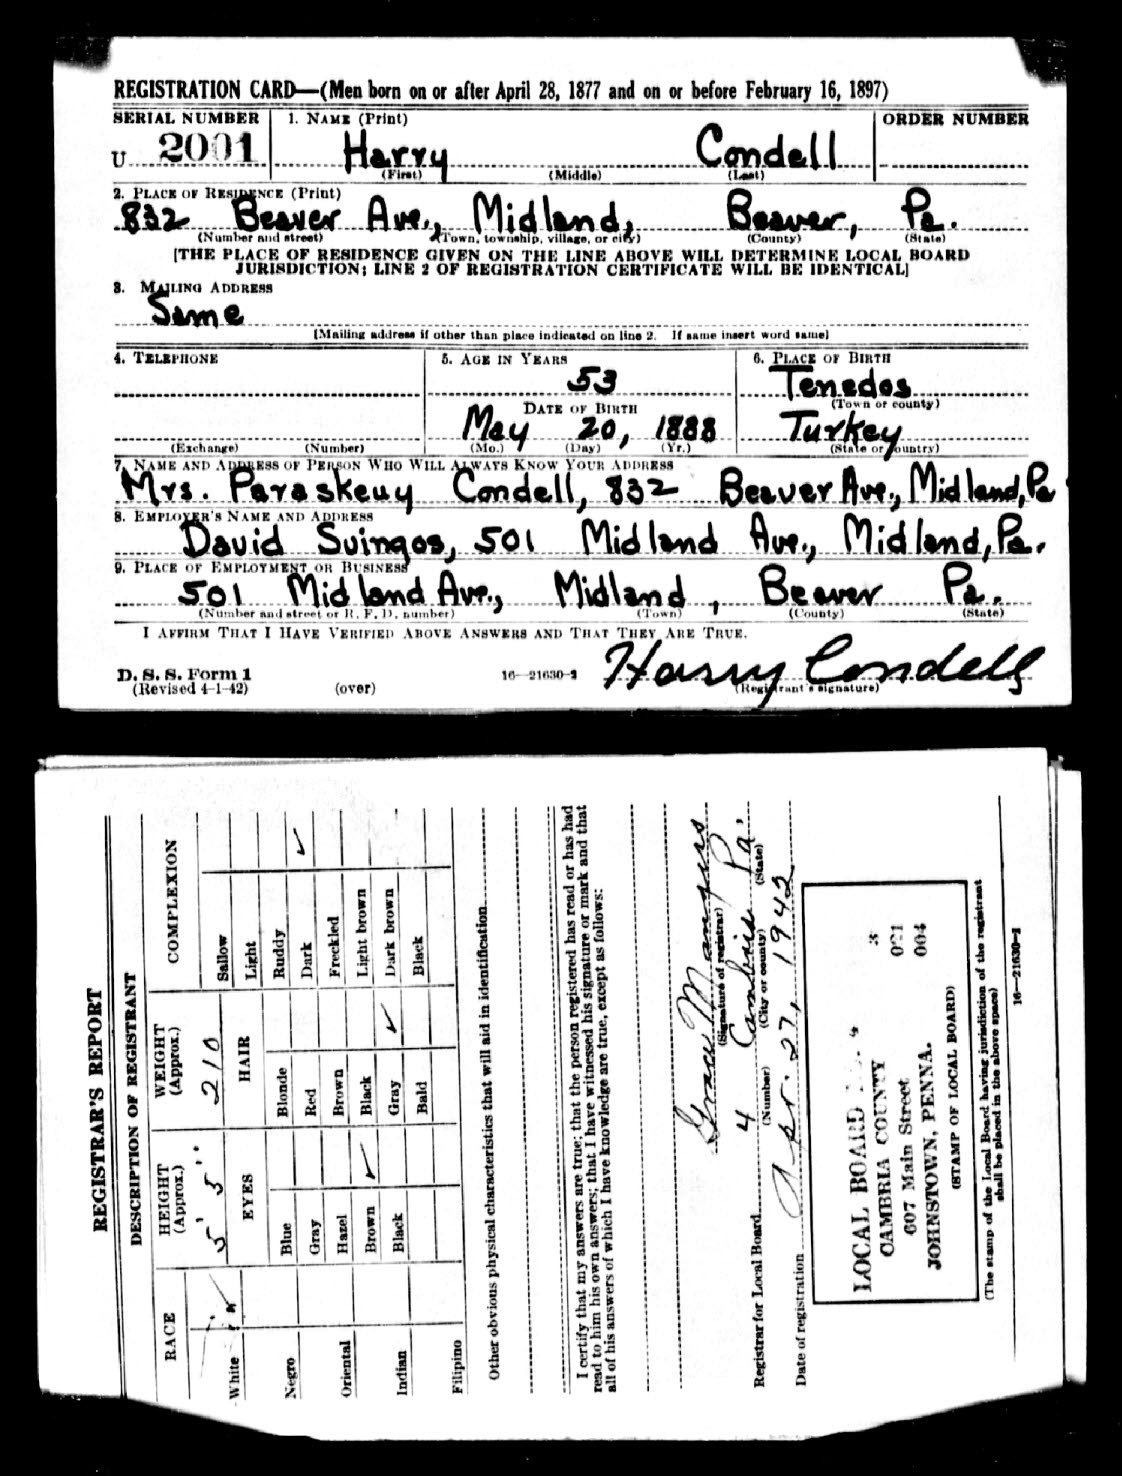 REGISTRATION CARD—(Men born on or after April 28, 1877 and on or before February 16, 1897)
SERIAL NUMBER 1. NAME (Print) ORDER NUMBER
U 2001 Harry Condell
(First) (Middle) (Last)
2. PLACE OF RESIDENCE (Print)
832 Beaver Ave., Midland, Beaver, Pa.
(Number and street) (Town, township, village, or city) (County) (State)
[THE PLACE OF RESIDENCE GIVEN ON THE LINE ABOVE WILL DETERMINE LOCAL BOARD
JURISDICTION; LINE 2 OF REGISTRATION CERTIFICATE WILL BE IDENTICAL]
3. MAILING ADDRESS
Same
[Mailing address if other than place indicated on line 2. If same insert word same]
4. TELEPHONE 5. AGE IN YEARS 6. PLACE OF BIRTH
53 Tenedos
DATE OF BIRTH (Town or county)
May 20, 1888 Turkey
(Exchange) (Number) (Mo.) (Day) (Yr.) (State or country)
7. NAME AND ADDRESS OF PERSON WHO WILL ALWAYS KNOW YOUR ADDRESS
Mrs. Paraskeuy Condell, 832 Beaver Ave., Midland, Pa
8. EMPLOYER'S NAME AND ADDRESS
David Suingos, 501 Midland Ave., Midland, Pa.
9. PLACE OF EMPLOYMENT OR BUSINESS
501 Midland Ave., Midland, Beaver Pa.
(Number and street or R. F. D. number) (Town) (County) (State)
I AFFIRM THAT I HAVE VERIFIED ABOVE ANSWERS AND THAT THEY ARE TRUE.
Harry Condell
D. S. S. Form 1
(Revised 4-1-42) (over) 16—21630-2 (Registrant's signature)
REGISTRAR'S REPORT
DESCRIPTION OF REGISTRANT
RACE HEIGHT (Approx.) WEIGHT (Approx.) COMPLEXION
5' 5" 210
White EYES HAIR Sallow
Light
Negro Blue Blonde Ruddy
Gray Red Dark ✓
Oriental Hazel Brown Freckled
Brown ✓ Black Light brown
Indian Black Gray ✓ Dark brown
Bald Black
Filipino
Other obvious physical characteristics that will aid in identification
I certify that my answers are true; that the person registered has read or has had
read to him his own answers; that I have witnessed his signature or mark and that
all of his answers of which I have knowledge are true, except as follows:
(Signature of registrar)
Registrar for Local Board 4 Cambria Pa.
(Number) (City or county) (State)
Date of registration Apr. 27, 1942
LOCAL BOARD 4 3
CAMBRIA COUNTY 021
607 Main Street 004
JOHNSTOWN, PENNA.
(STAMP OF LOCAL BOARD)
(The stamp of the Local Board having jurisdiction of the registrant
shall be placed in the above space)
16—21630-1